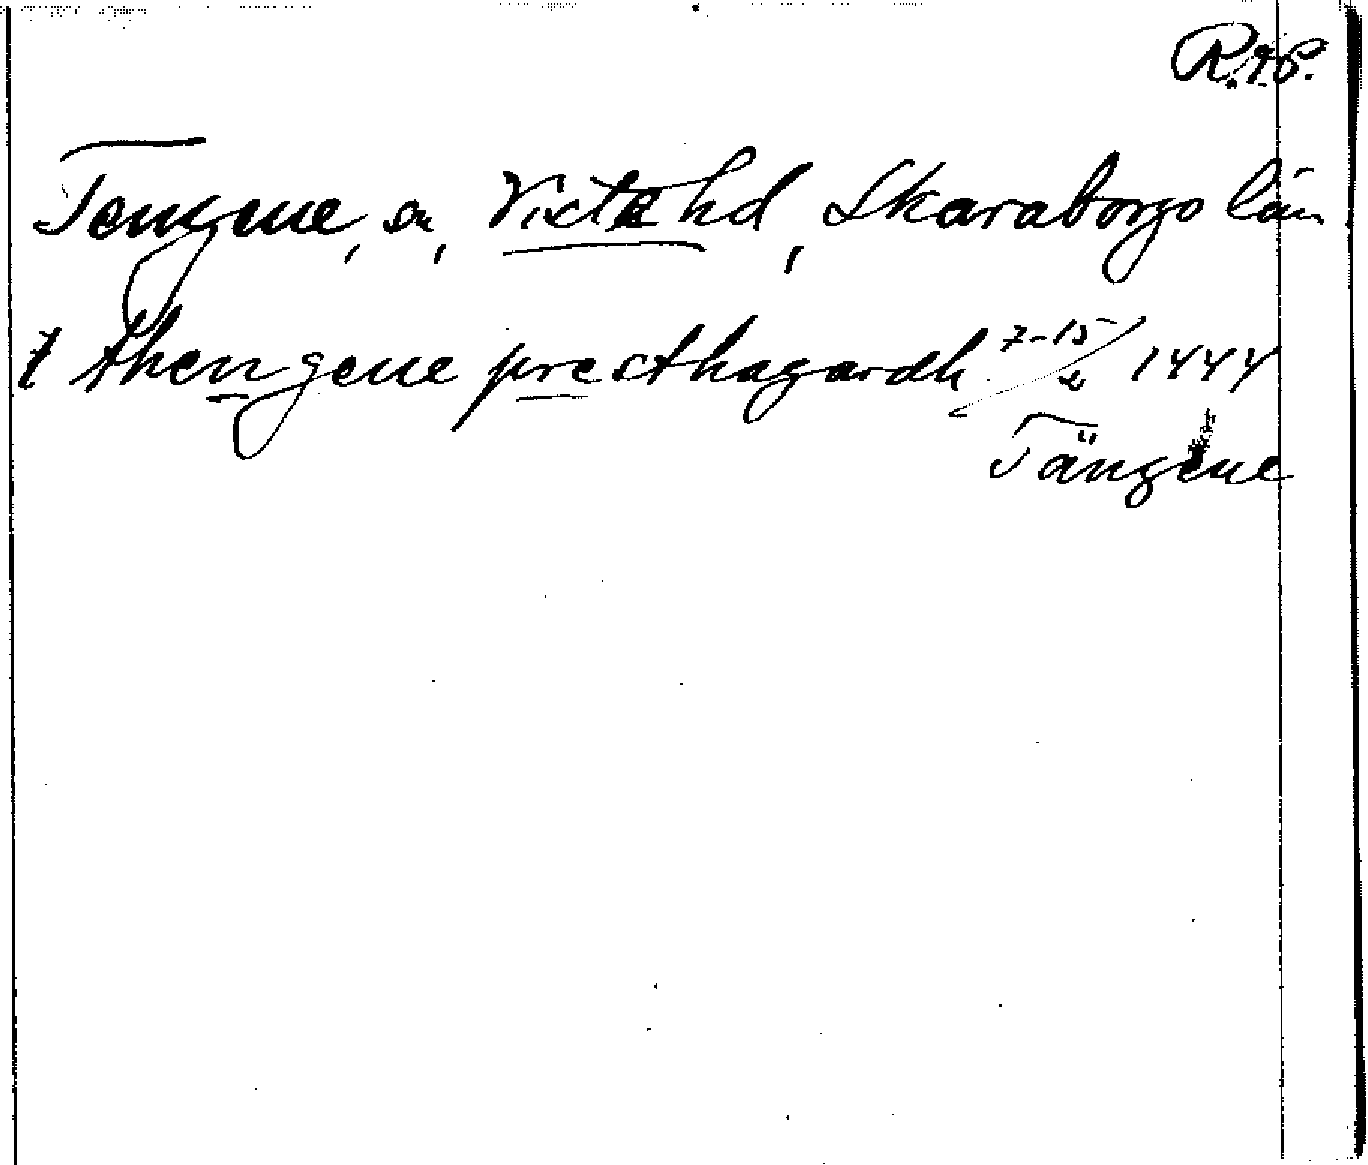 R.76.
Tengene, sn, Viste hd, Skaraborgs län
t thengene presthagardh 7-15/6 1444
Tängene